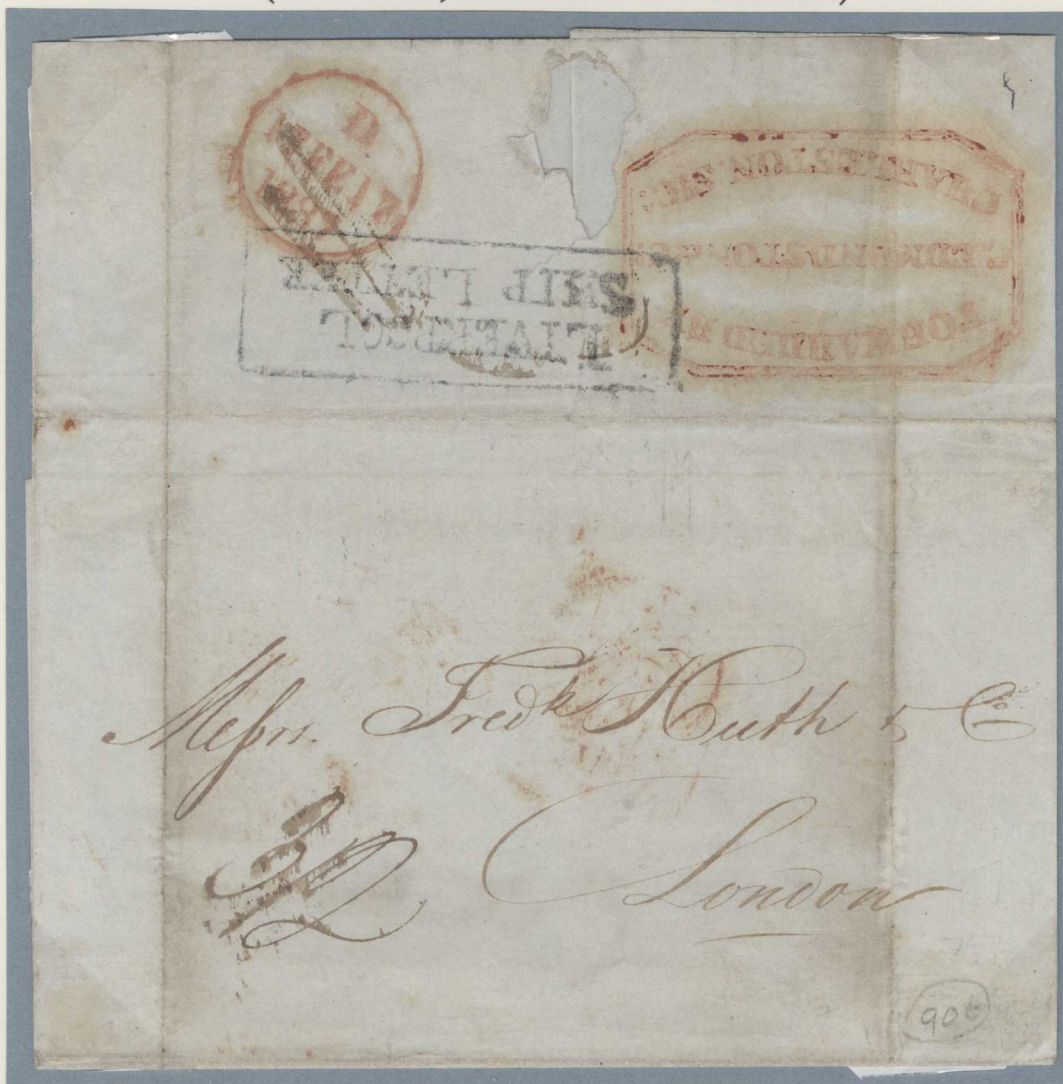 D
FEB 12
LIVERPOOL
SHIP LETTER
FORWARDED BY
EDMONDSTON
CHARLESTON
Messrs. Fredk Huth & Co
London
906